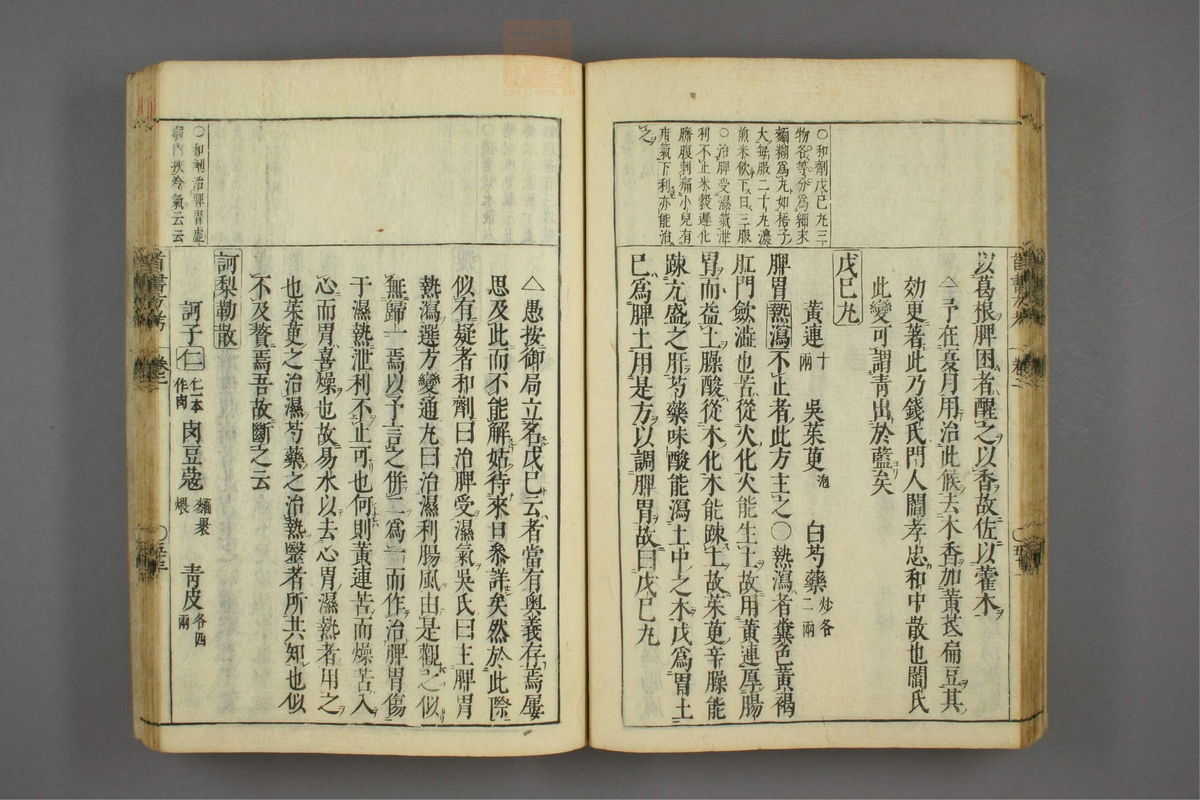 以葛根脾困者醒之以香故佐以藿木
△予在夏月用治此候去木香加黃芪扁豆其
効更著此乃錢氏門人閻孝忠和中散也閻氏
此變可謂青出於藍矣
戊巳丸
黃連十兩 吳茱萸泡 白芍藥炒各二兩
脾胃熱瀉不止者此方主之○熱瀉者糞色黃褐
肛門斂澁也苦從火化火能生土故用黃連厚腸
胃而益土臊酸從木化木能踈土故茱萸辛臊能
踈亢盛之肝芍藥味酸能瀉土中之木戊爲胃土
巳爲脾土用是方以調脾胃故曰戊巳丸
○和劑戊巳丸三
物各等分爲細末
麵糊爲丸如梧子
大每服二十丸濃
煎米飲下日三服
○治脾受濕氣泄
利不止米穀遲化
臍腹刺痛小兒有
疳氣下利亦能治
之
△愚按御局立名戊巳云者當有奧義存焉屢
思及此而不能解姑待來日參詳矣然於此際
似有疑者和劑曰治脾受濕氣吳氏曰主脾胃
熱瀉選方變通丸曰治濕利腸風由是觀之似
無歸一焉以予言之併二爲一而作治脾胃傷
于濕熱泄利不止可也何則黃連苦而燥苦入
心而胃喜燥也故易水以去心胃濕熱者用之
也茱萸之治濕芍藥之治熱醫者所共知也似
不及贅焉吾故斷之云
訶梨勒散
訶子仁仁一本作肉 肉豆蔻麵裹煨 青皮各四兩
○和劑治脾胃虛
弱內挾冷氣云云